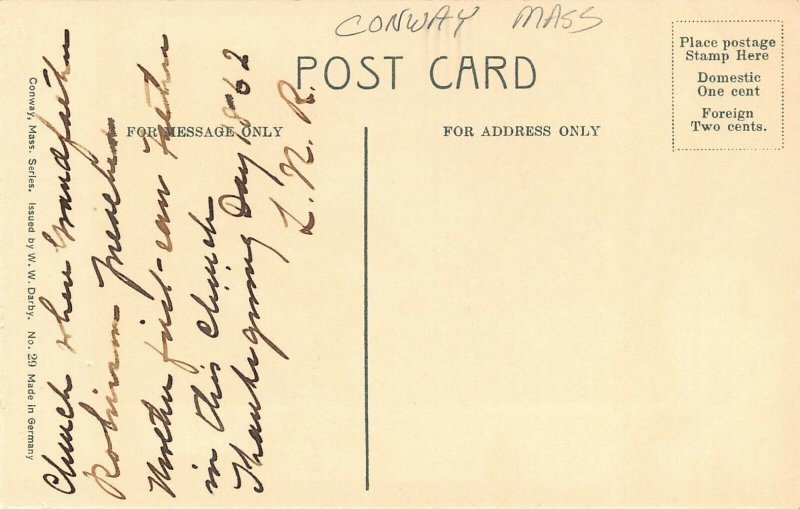 CONWAY MASS
POST CARD
Place postage
Stamp Here
Domestic
One cent
Foreign
Two cents.
FOR MESSAGE ONLY
FOR ADDRESS ONLY
Church when Grandfather
Robinson preached
Mother first saw Father
in this church
Thanksgiving Day 1862
L. N. R.
Conway, Mass. Series. Issued by W. W. Darby. No. 29 Made in Germany